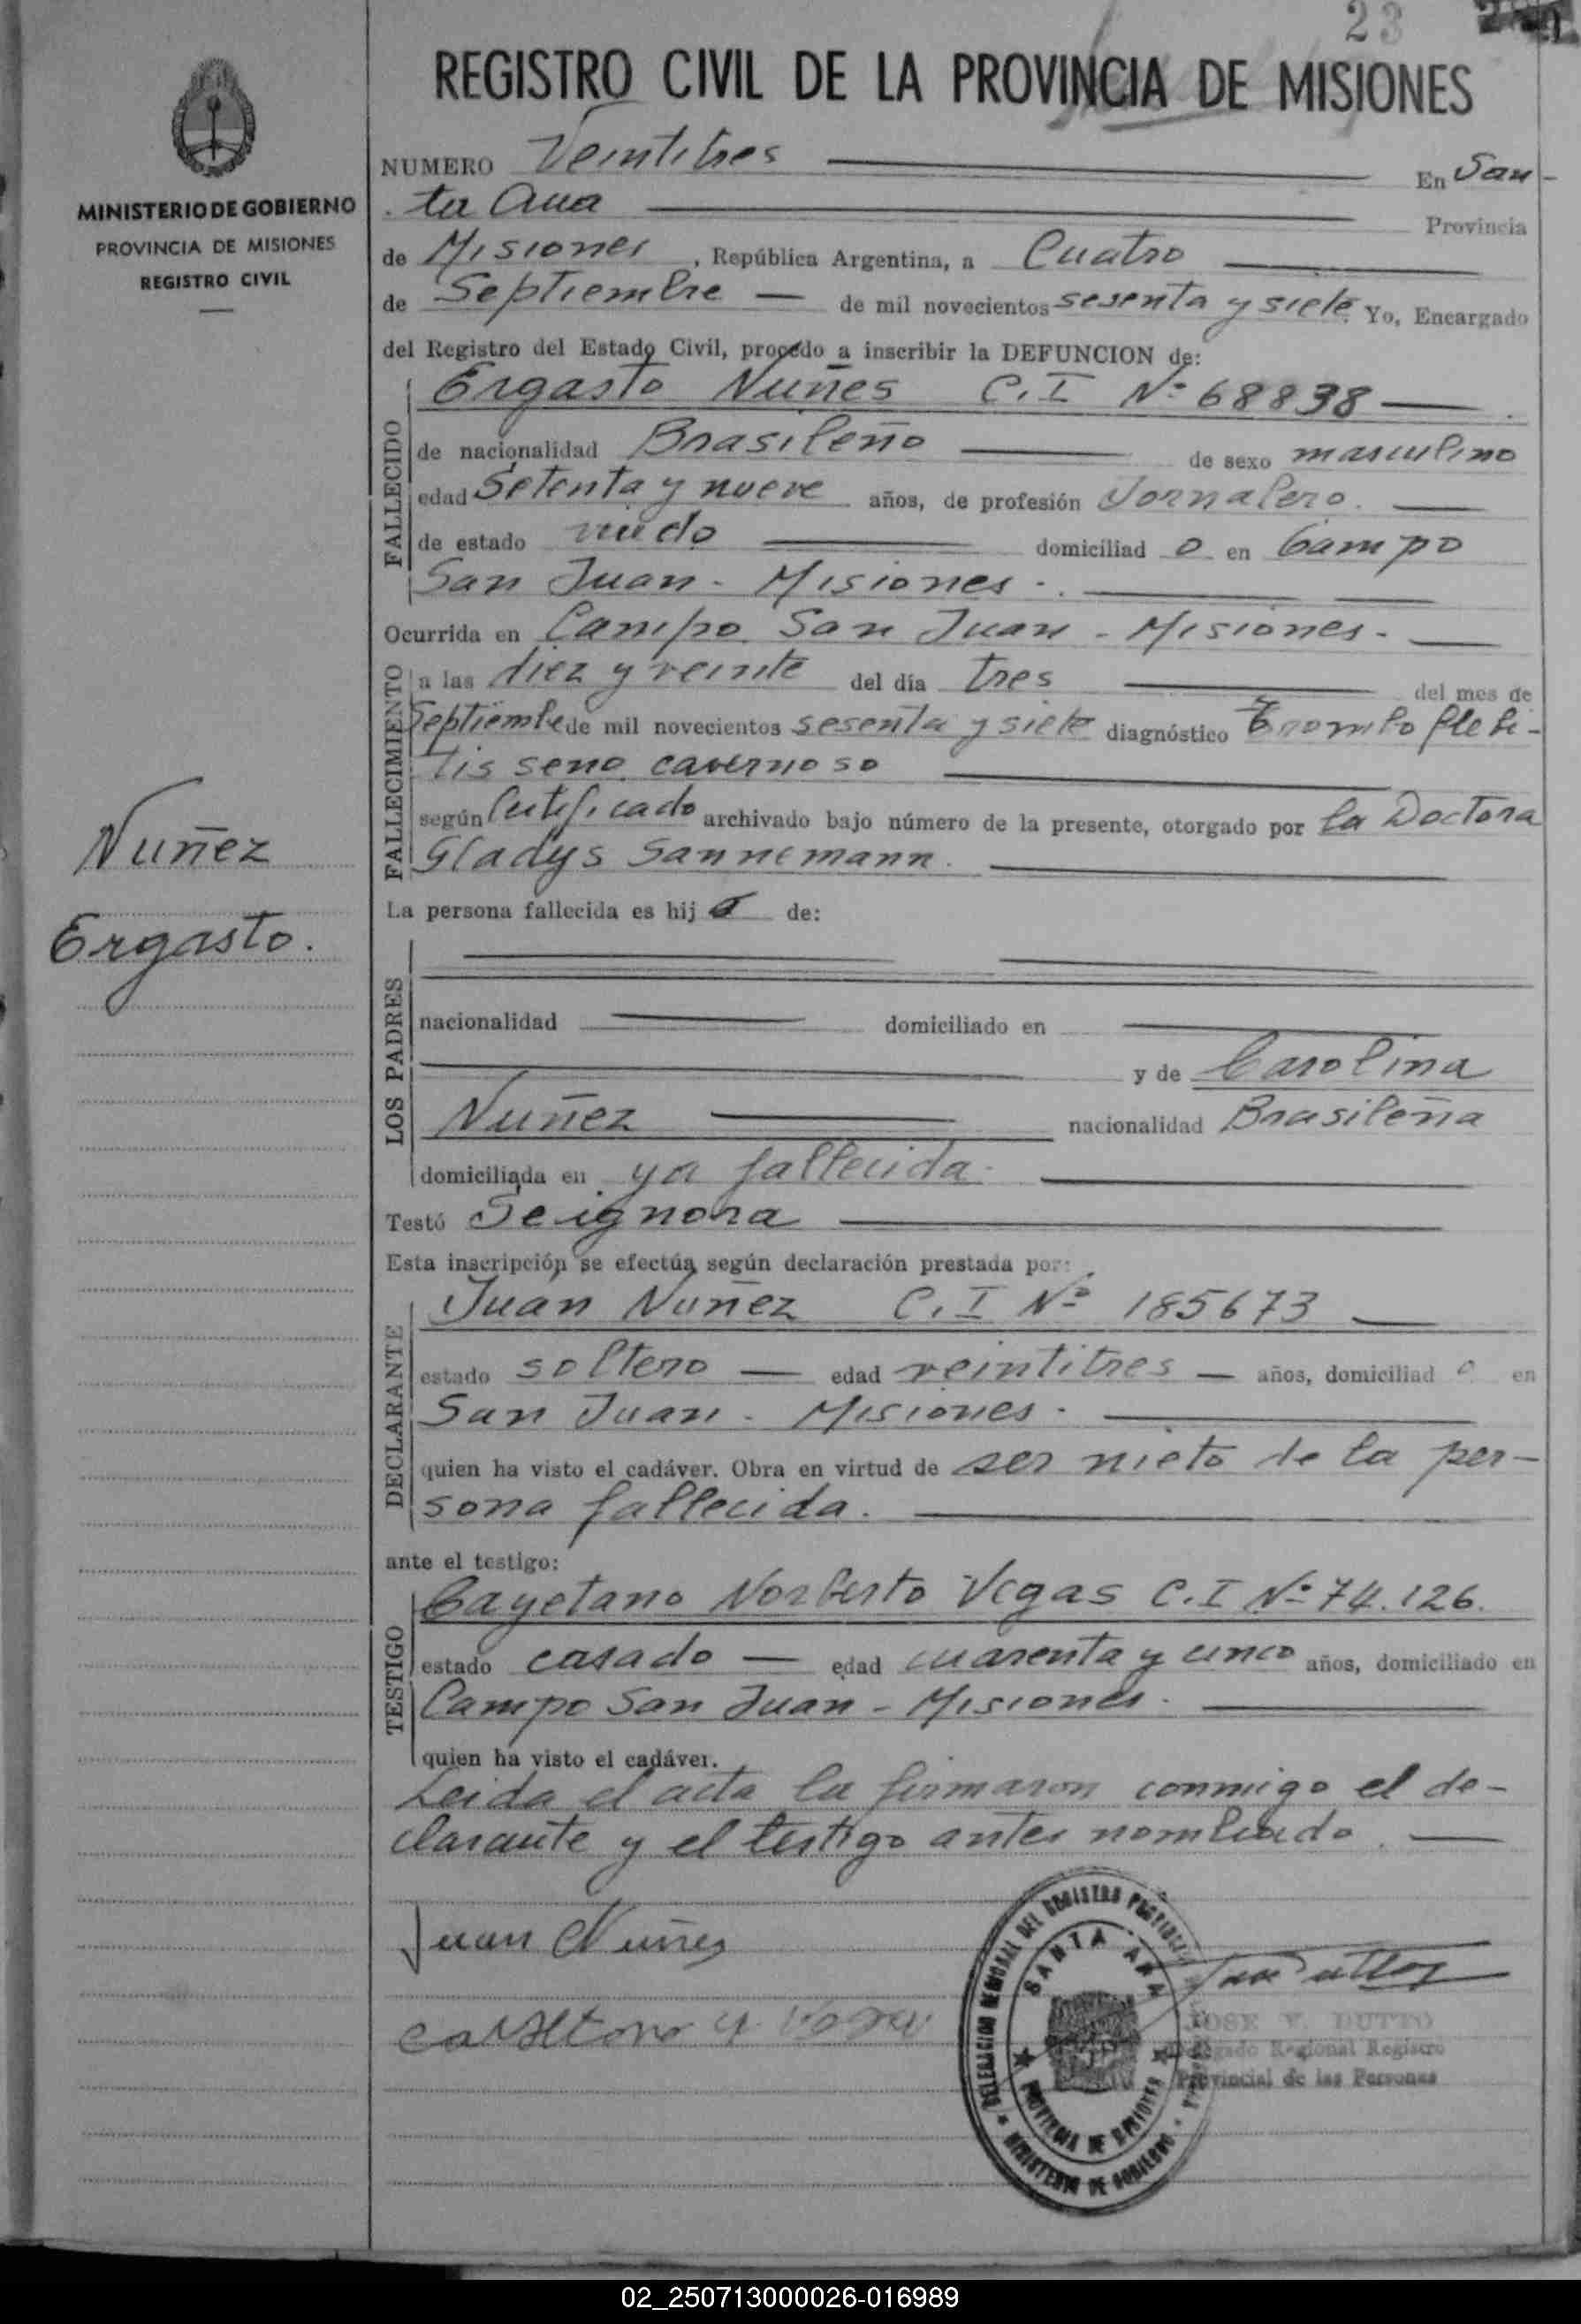 23
REGISTRO CIVIL DE LA PROVINCIA DE MISIONES
MINISTERIO DE GOBIERNO
PROVINCIA DE MISIONES
REGISTRO CIVIL
NUMERO Veintitres En San-
ta Ana Provincia
de Misiones, República Argentina, a Cuatro
de Septiembre de mil novecientos sesenta y siete Yo, Encargado
del Registro del Estado Civil, procedo a inscribir la DEFUNCION de:
FALLECIDO
Ergasto Nuñes C.I Nº 68838
de nacionalidad Brasileño de sexo masculino
edad Setenta y nueve años, de profesión Jornalero.
de estado viudo domiciliad o en Campo
San Juan - Misiones -.
Ocurrida en Campo San Juan - Misiones -
FALLECIMIENTO
a las diez y veinte del día tres del mes de
Septiembe de mil novecientos sesenta y siete diagnóstico Trombo flebi-
tis seno cavernoso
según Certificado archivado bajo número de la presente, otorgado por la Doctora
Gladys Sannemann.
Nuñez
Ergasto.
La persona fallecida es hij o de:
LOS PADRES
nacionalidad domiciliado en
y de Carolina
Nuñez nacionalidad Brasileña
domiciliada en ya fallecida -
Testó Se ignora
Esta inscripción se efectúa según declaración prestada por:
DECLARANTE
Juan Nuñez C.I Nº 185673
estado soltero edad veintitres años, domiciliad o en
San Juan - Misiones -
quien ha visto el cadáver. Obra en virtud de ser nieto de la per-
sona fallecida.
ante el testigo:
TESTIGO
Cayetano Norberto Vegas C.I Nº 74.126.
estado casado edad cuarenta y cinco años, domiciliado en
Campo San Juan - Misiones -
quien ha visto el cadáver.
Leida el acta la firmaron conmigo el de-
clarante y el testigo antes nombrado.
Juan Nuñes
SANTA ANA
PROVINCIA DE MISIONES
MINISTERIO DE GOBIERNO
JOSE V. DUTTO
Delegado Regional Registro
Provincial de las Personas
02_250713000026-016989